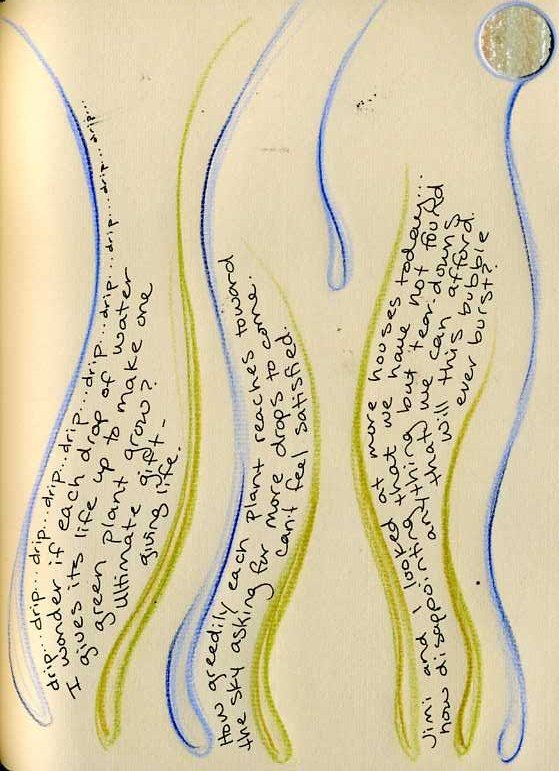 drip...drip...drip...drip...drip...drip...drip...drip...drip...drip...drip...
I wonder if each drop of water
gives its life up to make one
green plant grow?
Ultimate gift-
giving life.
How greedily each plant reaches toward
the sky asking for more drops to come.
Can't feel satisfied.
Jimi and I looked at more houses today...
how disappointing that we have not found
anything but tear downs
that we can afford.
will this bubble
ever burst?